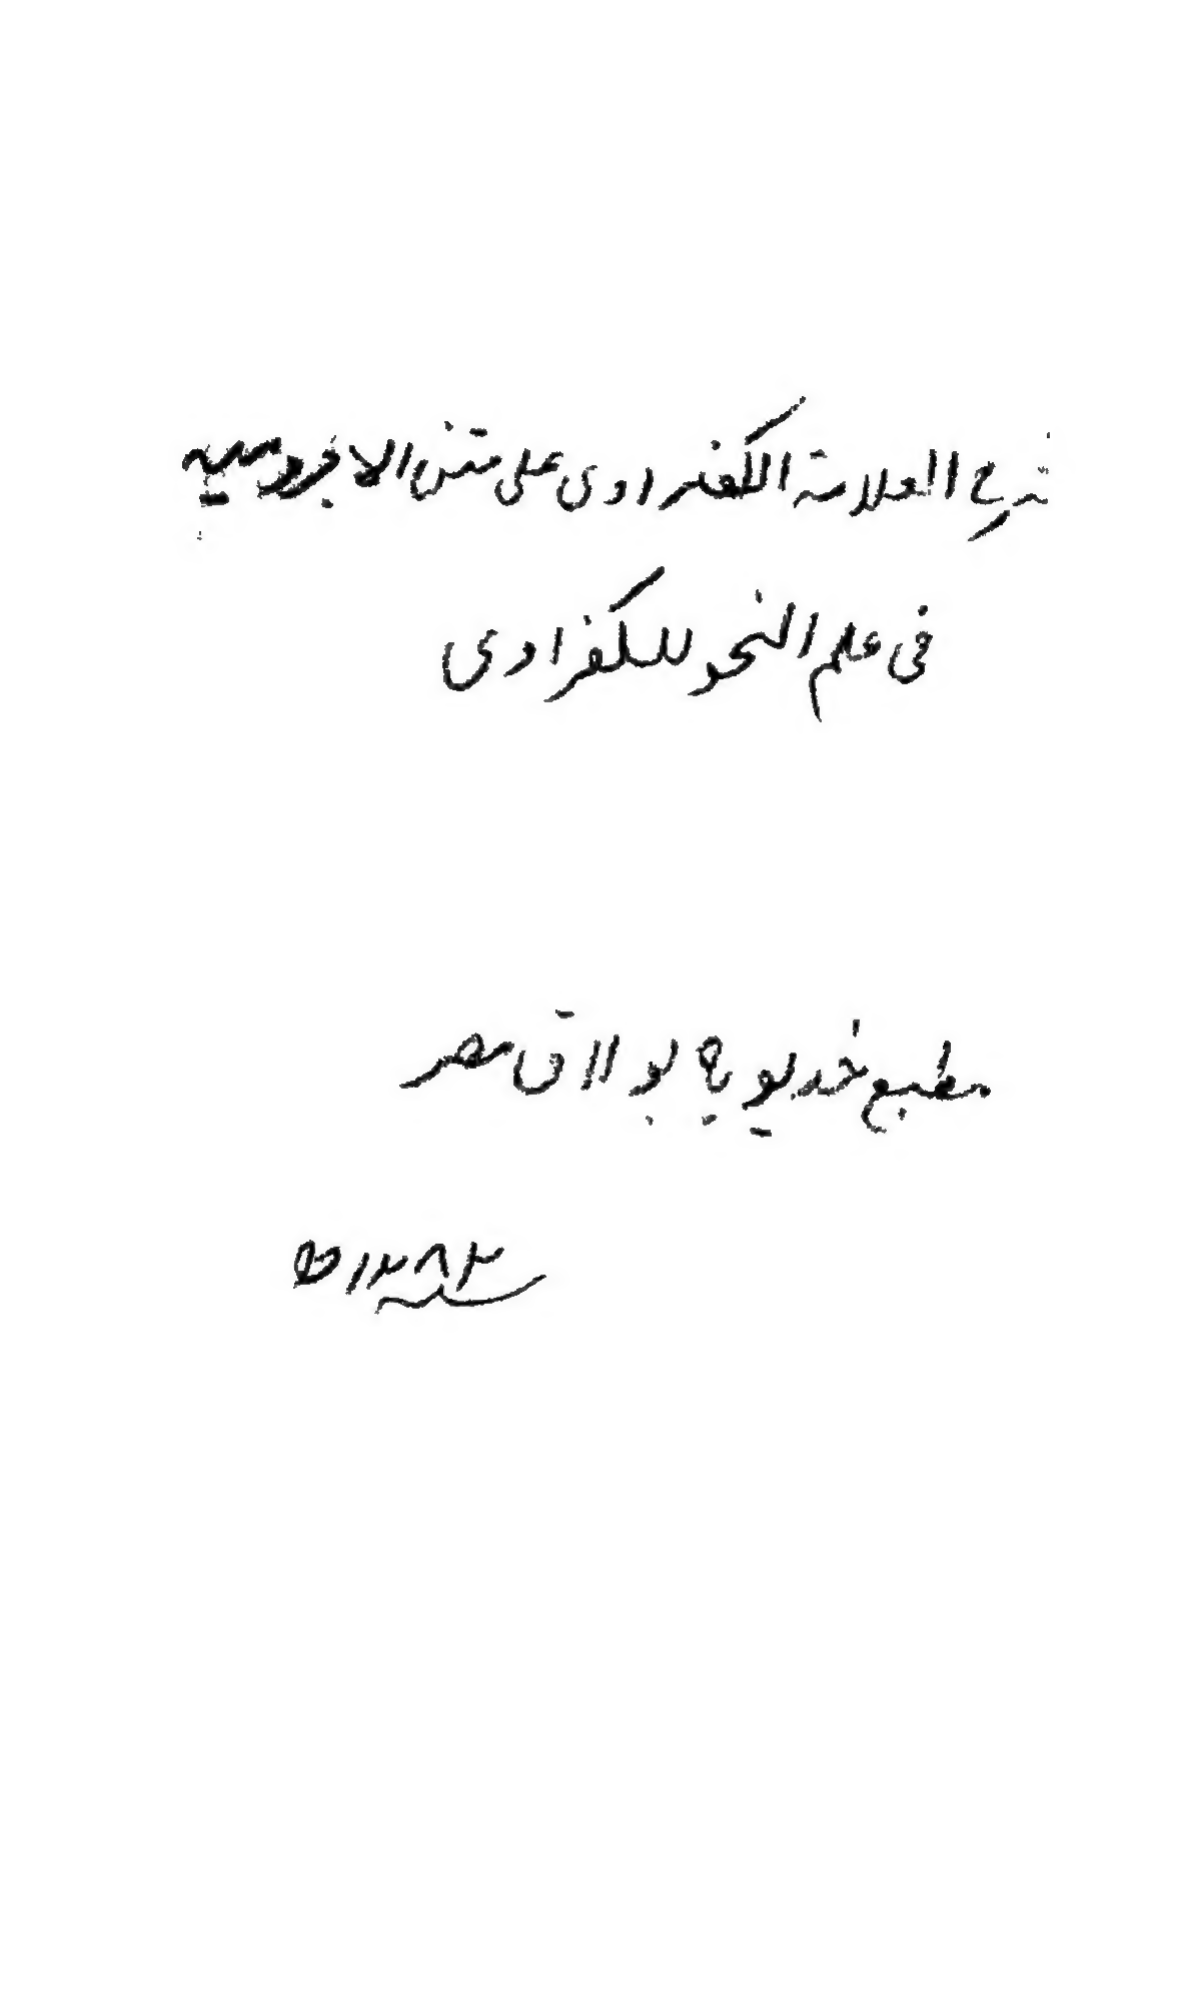 شرح العلامة الكفراوى على متن الاجرومية
فى علم النحو للكفراوى
مطبع خديويه بولاق مصر
سنه ١٢٨٣ ه